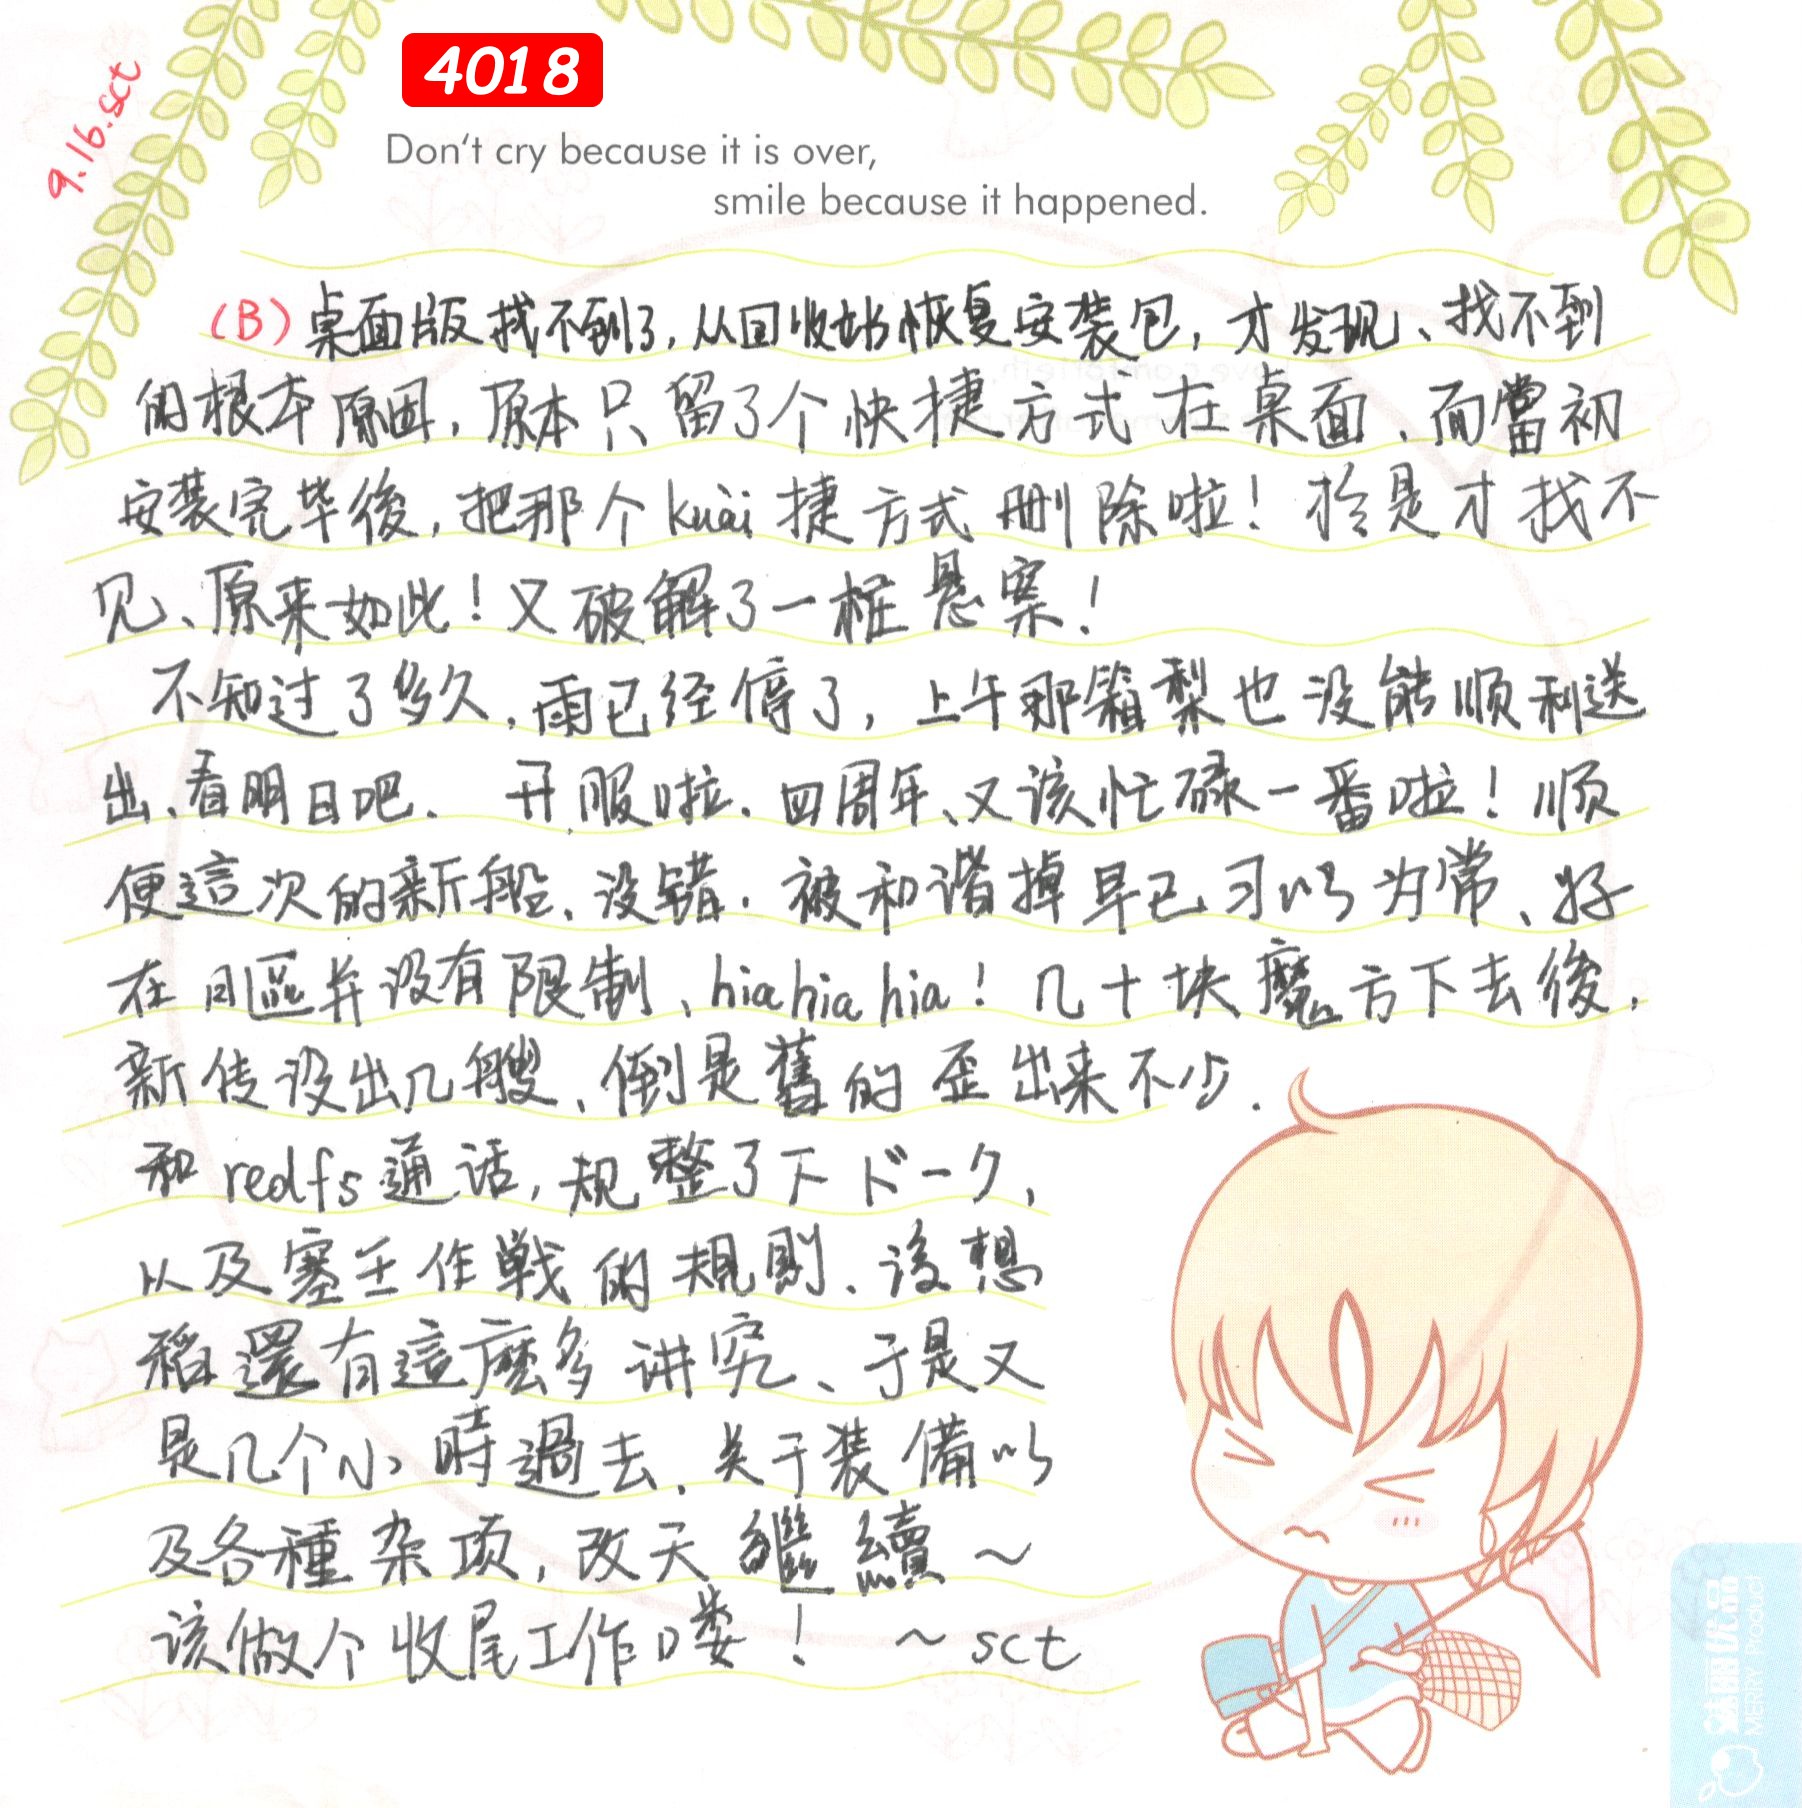 4018
9.16.sct
Don't cry because it is over,
smile because it happened.
(B)桌面版找不到了,从回收站恢复安装包,才发现、找不到
的根本原因,原本只留了个快捷方式在桌面、而當初
安装完毕後,把那个kuài捷方式删除啦!於是才找不
见、原来如此!又破解了一桩悬案!
不知过了多久,雨已经停了,上午那箱梨也没能顺利送
出、看明日吧. 开服啦.四周年、又该忙碌一番啦!顺
便這次的新船、没错.被和谐掉早已习以为常、好
在日區并没有限制、hia hia hia!几十块魔方下去後,
新传没出几艘、倒是舊的歪出来不少.
和redfs通话,规整了下ドーク,
以及塞壬作戦的規則、没想
稻還有這麼多讲究、于是又
是几个小時過去、关于装備以
及各種杂项,改天繼續~
该做个收尾工作喽! ~sct
沐朋优品
MERRY Product